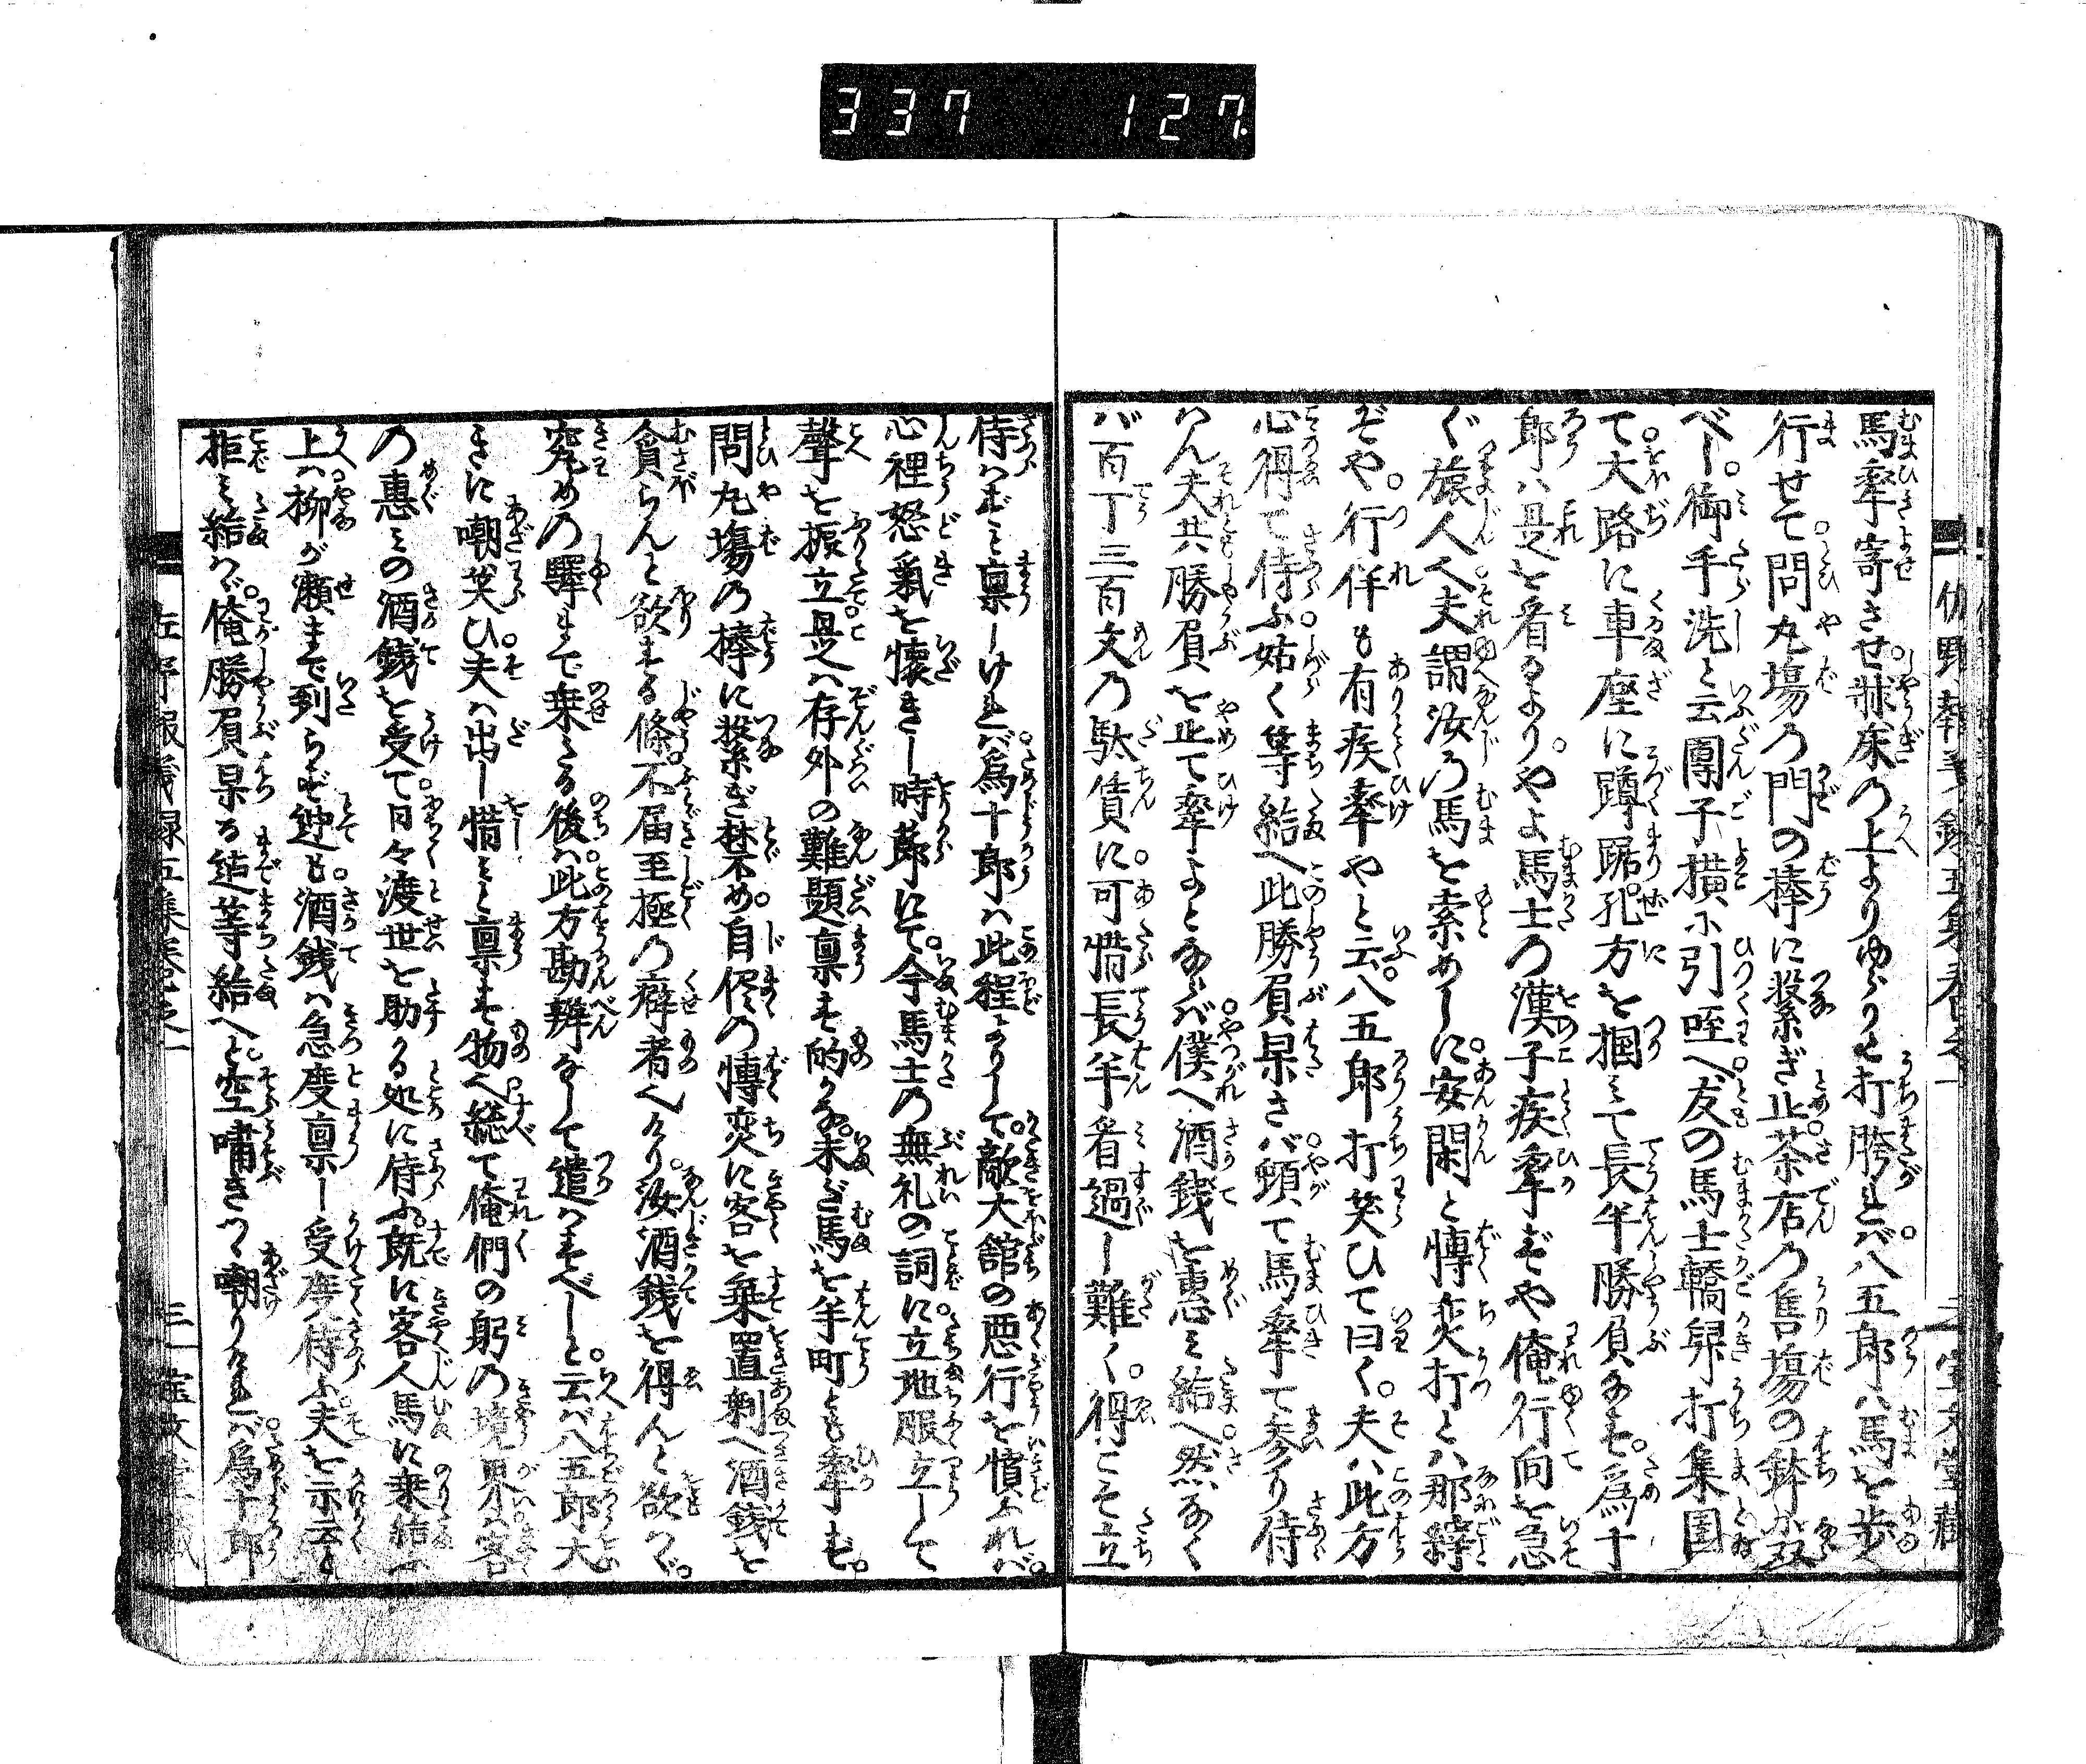 337 127.
馬牽寄させ牀床の上よりゆらりと打胯れば八五郎ハ馬を歩
行せて問丸塲の門の棒に繋ぎ止茶店の售塲の鉢に双
べし。御手洗と云團子横に引咥へ友の馬士轎舁打集圍
て大路に車座に蹲踞孔方を掴ミて長半勝負なす。爲十
郎ハ是を看るより。やよ馬士の漢子疾牽ずや俺行向を急
ぐ旅人人夫謂汝の馬を索めしに安閑と博奕打とハ那絳
ぞや。行伴も有疾牽やと云。八五郎打笑ひて曰く。夫ハ此方
心得て侍ふ姑く等給へ此勝負杲さバ頓て馬牽て参り侍
らん夫共勝負を止て牽よとならバ僕へ酒錢を惠ミ給へ然なく
バ百丁三百文の駄賃に可惜長半看過し難く。得こそ立
侍ハずと稟しければ。爲十郎ハ此程よりして敵大舘の悪行を憤ふれバ。
心裡怒氣を懐きし時莭にて。今馬士の無礼の詞に立地服立して
聲を振立是ハ存外の難題稟す的かな。未ダ馬を半町とも牽もせ。
問丸塲の棒に繋ぎ禁め。自侭の博奕に客を乗置剰へ酒錢を
貪らんと欲する條。不届至極の癖者へり。汝酒錢を得んと欲つゞ。
究めの驛まで乗たる後ハ此方勘辨なして遣ハすべしと。云バ八五郎大
きに嘲笑ひ。夫ハ出し惜ミと稟す物へ。総て俺們の躬の境界ハ客
の惠ミの酒錢を受て日々渡世を助かる処に侍ふ。既に客人馬に乗給ふ
上ハ柳が瀬まで到らず迚も。酒錢ハ急度稟し受度侍ふ夫を示云と
拒ミ給ハゞ。俺勝負杲る迠等給へと。空嘯きつゝ嘲りければ。爲十郎